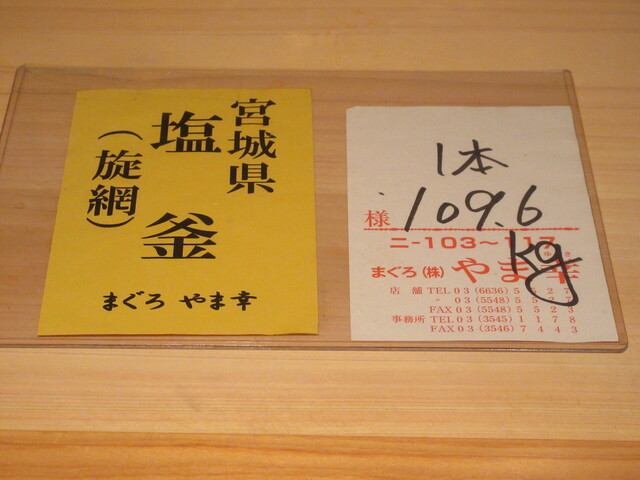 宮城県
塩釜
(旋網)
まぐろ やま幸
1本
109.6
kg
様
ニ-103~117
まぐろ(株)やま幸
店舗 TEL 03(6636)5527
〃 03(5548)5537
FAX 03(5548)5523
事務所 TEL 03(3545)1178
FAX 03(3546)7443